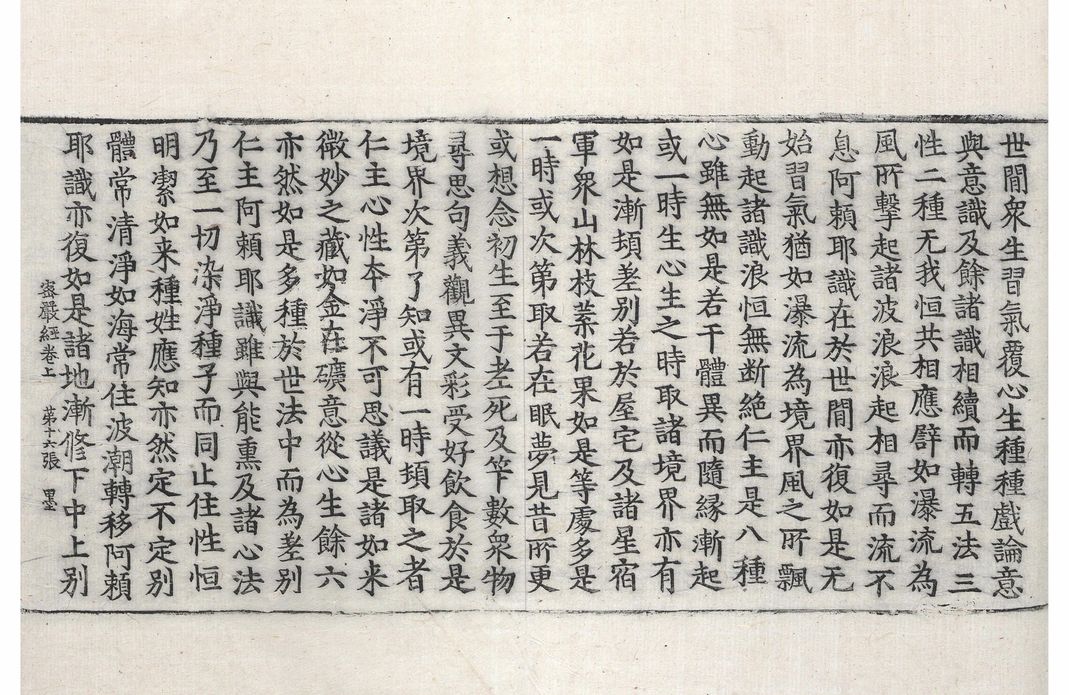 世間衆生習氣覆心生種種戲論意
與意識及餘諸識相續而轉五法三
性二種无我恒共相應譬如瀑流為
風所擊起諸波浪浪起相尋而流不
息阿賴耶識在於世間亦復如是无
始習氣猶如瀑流為境界風之所飄
動起諸識浪恒無断絶仁主是八種
心雖無如是若干體異而隨緣漸起
或一時生心生之時取諸境界亦有
如是漸頓差別若於屋宅及諸星宿
軍衆山林枝葉花果如是等處多是
一時或次第取若在眠夢見昔所更
或想念初生至于老死及筭數衆物
尋思句義觀異文彩受好飲食於是
境界次第了知或有一時頓取之者
仁主心性夲淨不可思議是諸如来
微妙之藏如金在礦意從心生餘六
亦然如是多種於世法中而為差别
仁主阿賴耶識雖與能熏及諸心法
乃至一切染淨種子而同止住性恒
明潔如来種姓應知亦然定不定别
體常清淨如海常住波潮轉移阿賴
耶識亦復如是諸地漸修下中上别
密嚴經卷上 第十六張 墨